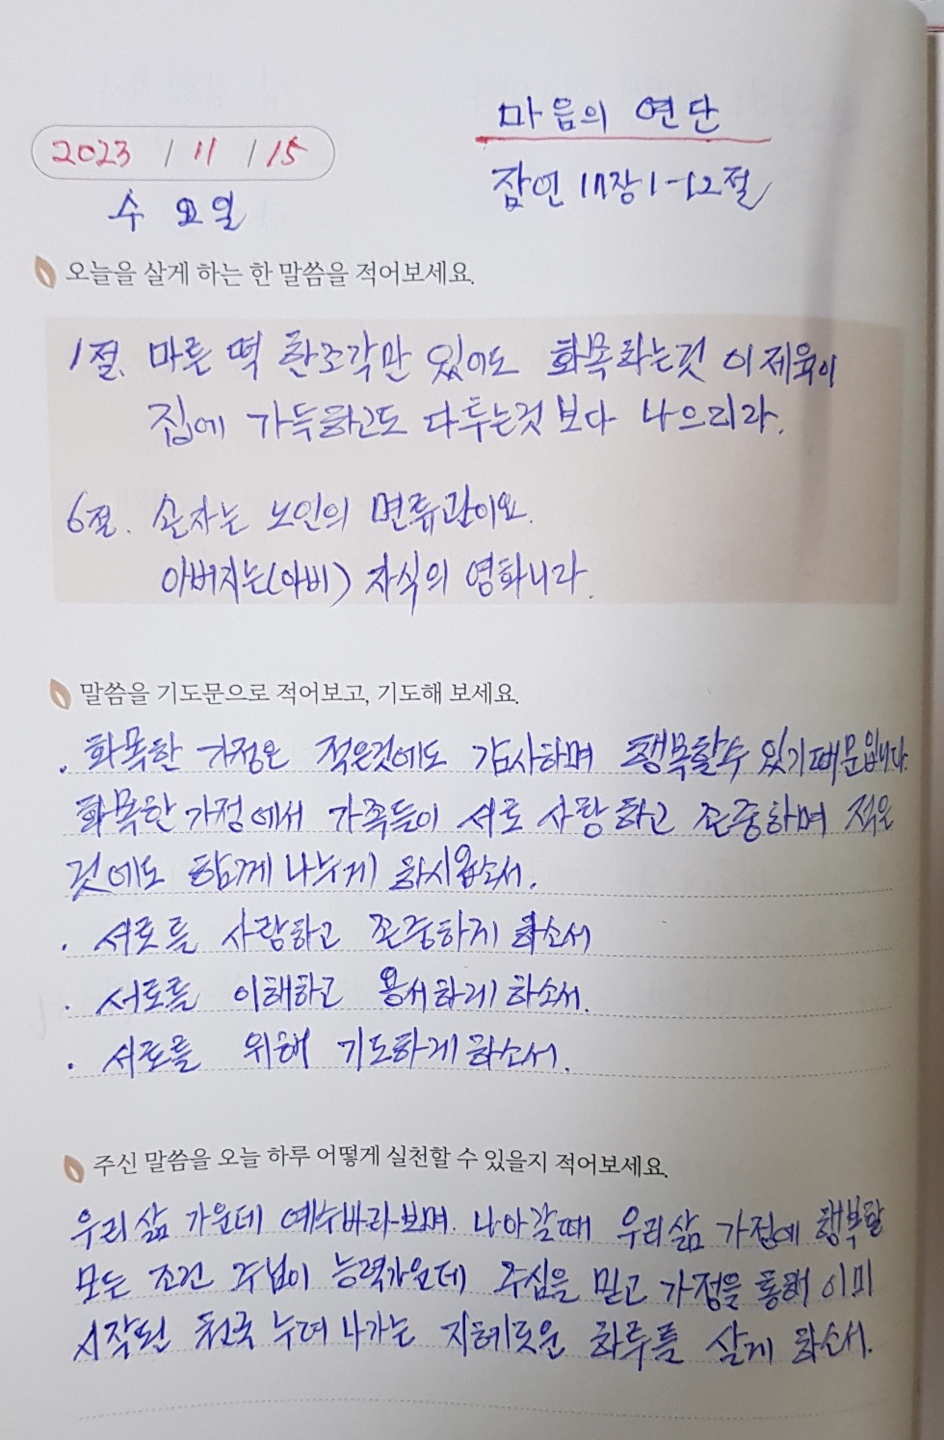 마음의 연단
2023 / 11 / 15
잠언 17장 1-12절
수 요일
오늘을 살게 하는 한 말씀을 적어보세요.
1절. 마른 떡 한조각만 있어도 화목하는것 이 제육이
집에 가득하고도 다투는것 보다 나으리라.
6절. 손자는 노인의 면류관이요.
아버지는(아비) 자식의 영화니라.
말씀을 기도문으로 적어보고, 기도해 보세요.
. 화목한 가정은 적은것에도 감사하며 행복할수 있기때문입니다.
화목한 가정에서 가족들이 서로 사랑하고 존중하며 적은
것에도 함께 나누게 하시옵소서.
. 서로를 사랑하고 존중하게 하소서
. 서로를 이해하고 용서하게 하소서.
. 서로를 위해 기도하게 하소서.
주신 말씀을 오늘 하루 어떻게 실천할 수 있을지 적어보세요.
우리삶 가운데 예수바라보며 나아갈때 우리삶 가정에 행복할
모든 조건 주님이 능력가운데 주심을 믿고 가정을 통해 이미
시작된 천국 누려 나가는 지혜로운 하루를 살게 하소서.